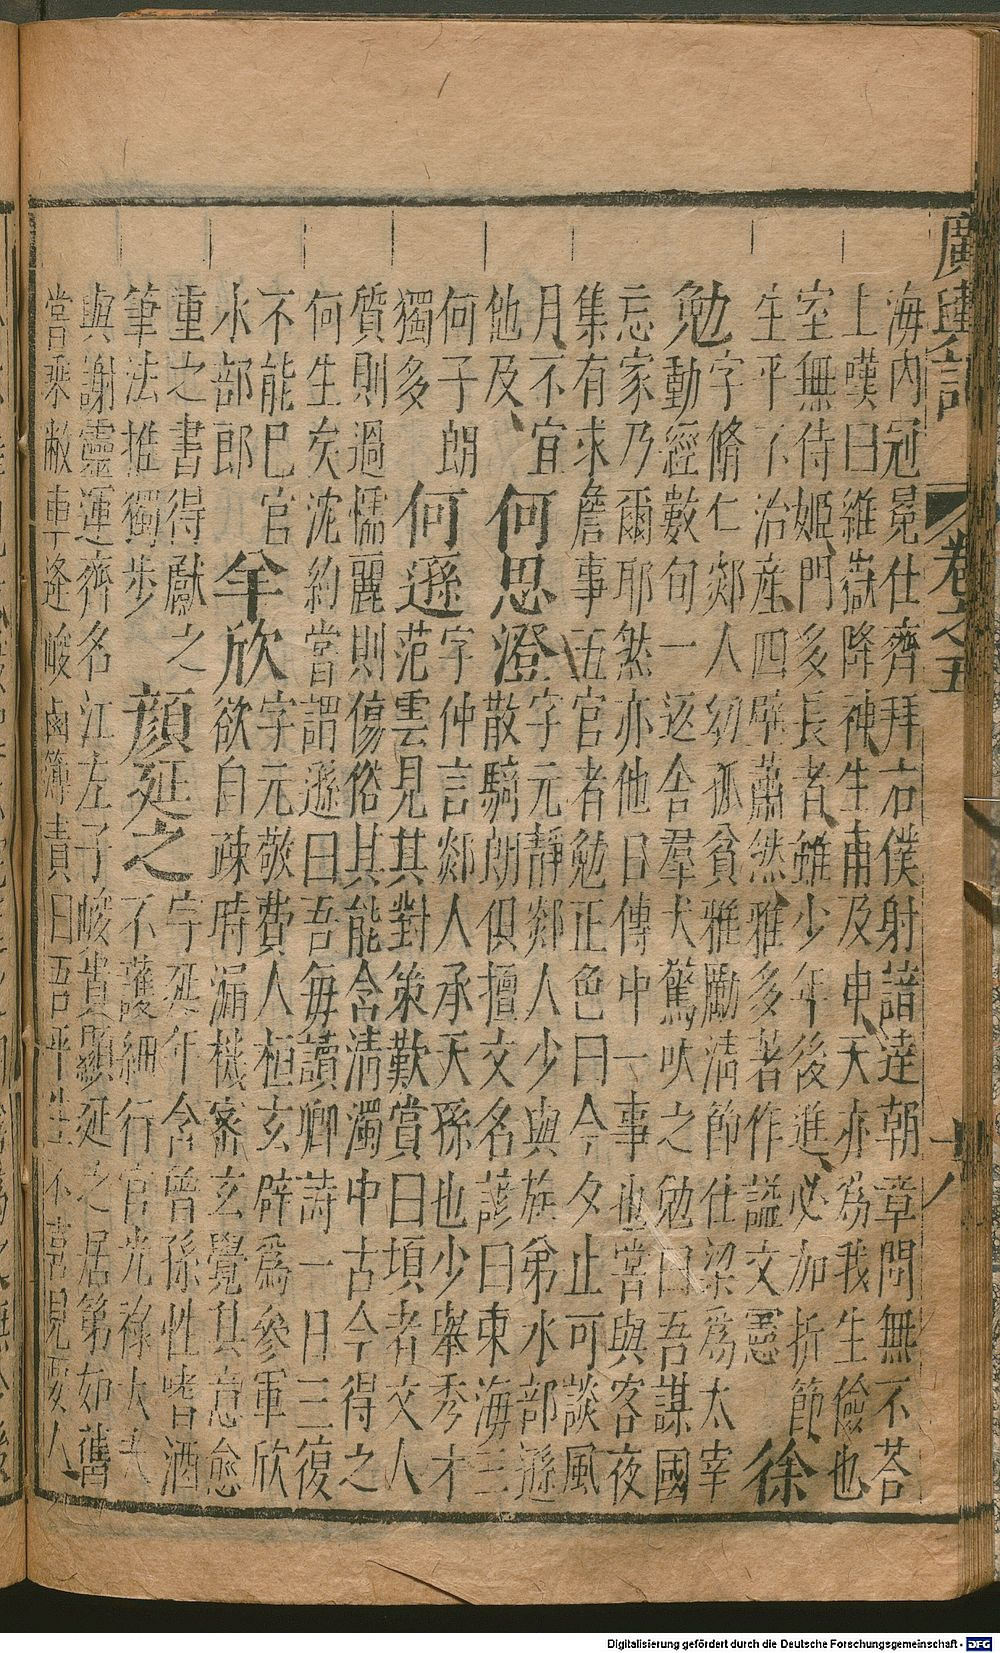 廣輿記 卷之五 十八
海內冠冕仕齊拜右僕射諳達朝章問無不荅
上嘆曰維嶽降神生甫及申天亦為我生儉也
室無侍姬門多長者雖少年後進必加折節
生平不治產四壁蕭然雅多著作謚文憲 徐
勉 字脩仁郯人幼孤貧雅勵清節仕梁為太宰
勤動經數旬一返舍羣犬驚吠之勉曰吾謀國
忘家乃爾耶然亦他日傳中一事也嘗與客夜
集有求詹事五官者勉正色曰今夕止可談風
月不宜 字元靜郯人少與族弟水部遜
他及 何思澄 散騎朗俱擅文名諺曰東海三
何子朗 字仲言郯人承天孫也少舉秀才
獨多 何遜 范雲見其對策歎賞曰頃者文人
質則過懦麗則傷俗其能含清濁中古今得之
何生矣沈約嘗謂遜曰吾每讀卿詩一日三復
不能已官 字元敬費人桓玄辟為參軍欣
水部郎 羊欣 欲自疎時漏機密玄覺其意愈
重之書得獻之 字延年含曾孫性嗜酒
筆法推獨步 顏延之 不護細行官光祿大夫
與謝靈運齊名江左子峻貴顯延之居第如舊
嘗乘敝車逢峻鹵簿責曰吾平生不喜見要人
Digitalisierung gefördert durch die Deutsche Forschungsgemeinschaft - DFG